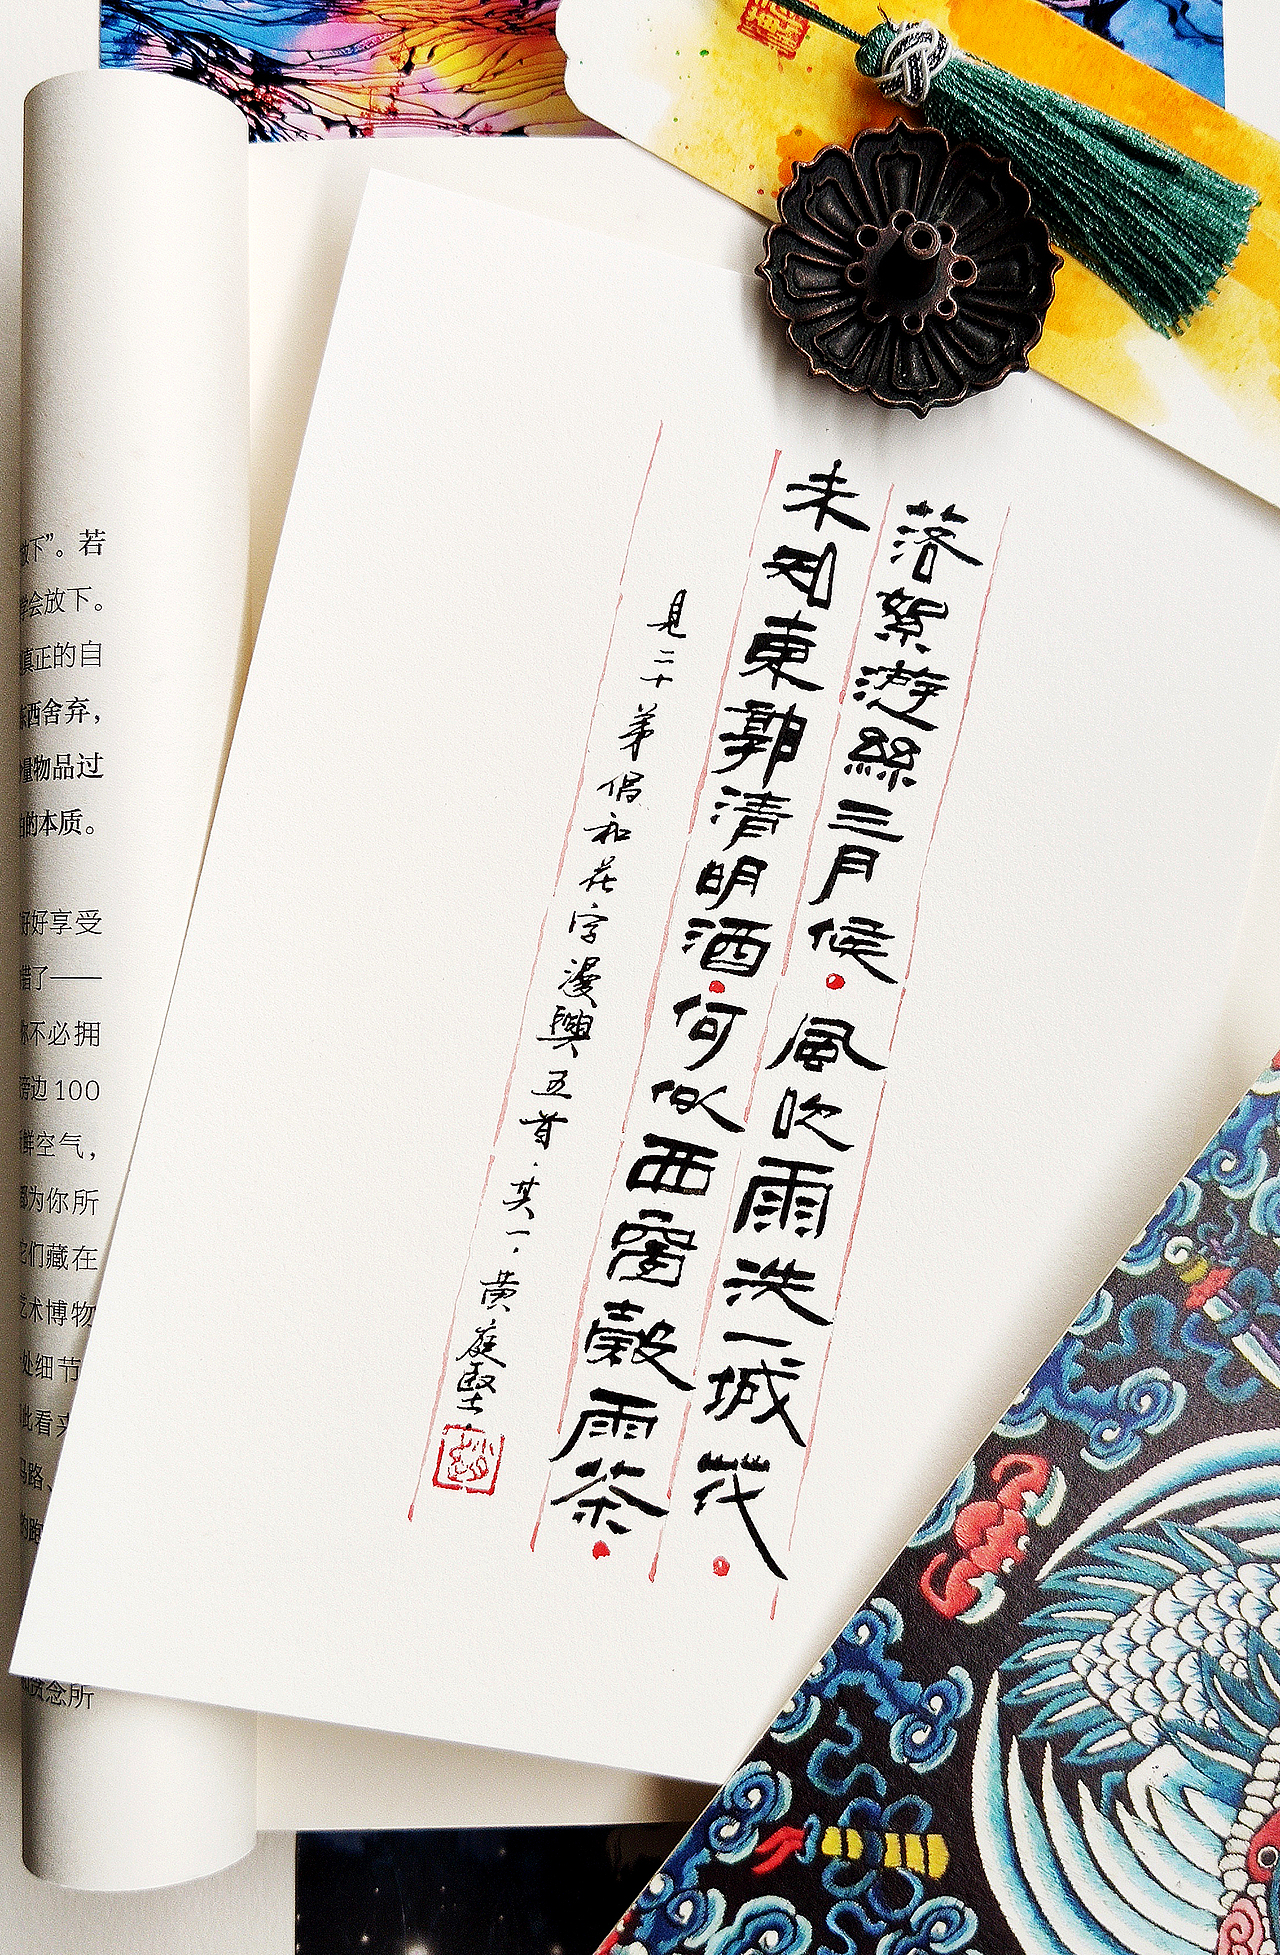 落絮遊絲三月候 風吹雨洗一城花
未知東郭清明酒 何似西窗穀雨茶
見二十弟倡和花字漫興五首·其一·黄庭堅
放下”。若
学会放下。
真正的自
东西舍弃，
量物品过
的本质。
好好享受
错了——
你不必拥
旁边100
鲜空气，
都为你所
它们藏在
艺术博物
处细节
此看来
马路、
的跑
和贪念所